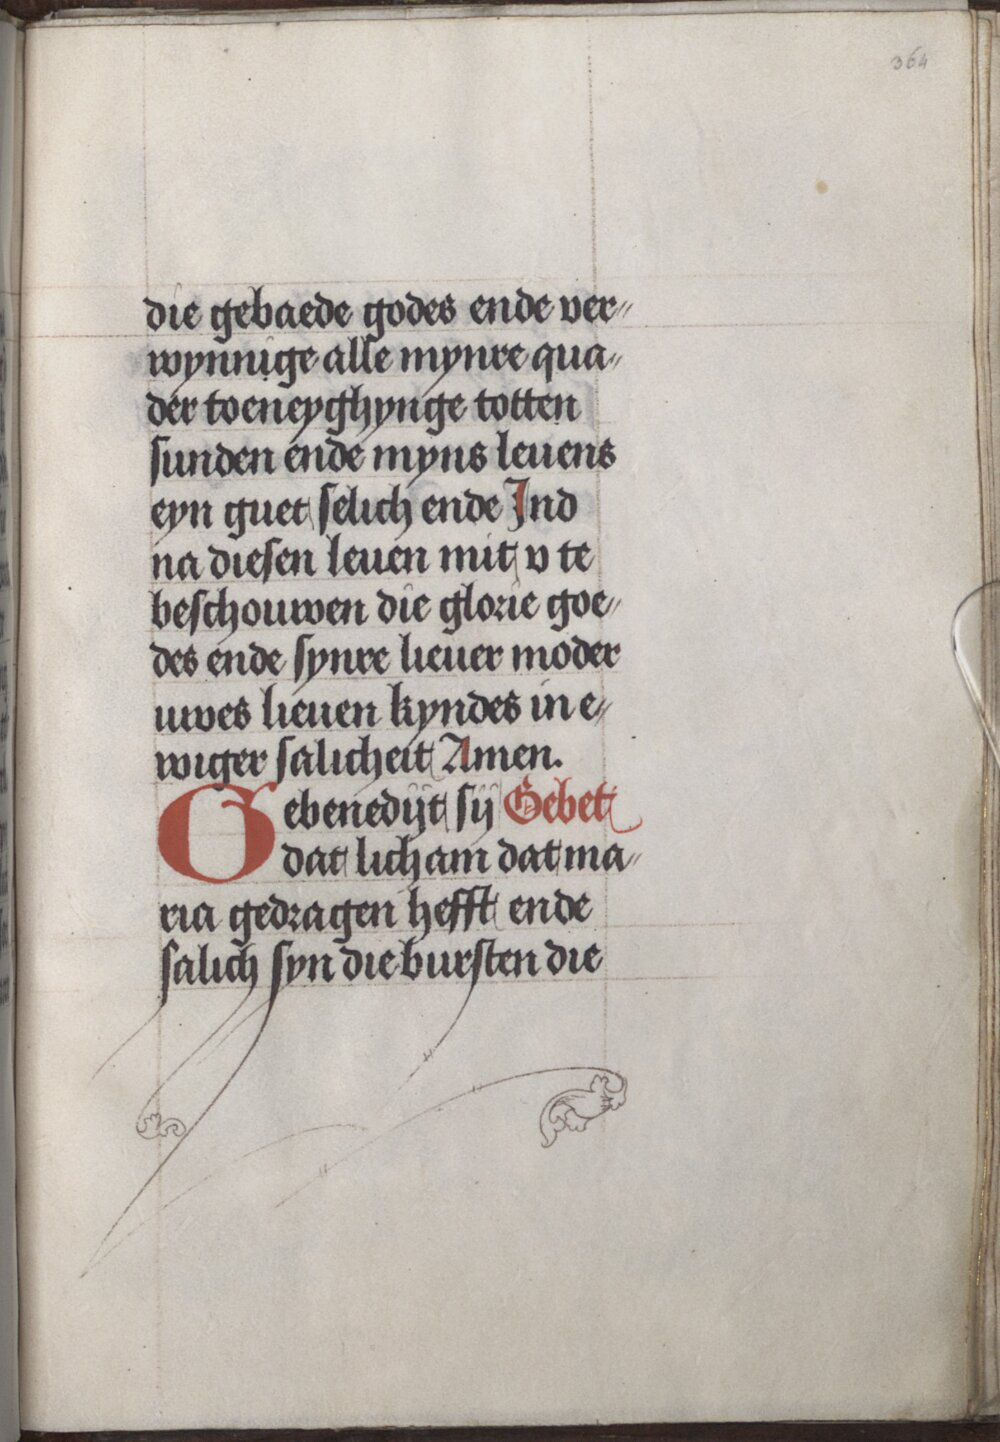 364
die gebaede godes ende ver⸗
wynnige alle mynre qua⸗
der toeneyghynge totten
sunden ende myns leuens
eyn guet selich ende Ind
na diesen leuen mit v te
beschouwen die glorie goe⸗
des ende synre lieuer moder
uwes lieuen kyndes in e⸗
wiger salicheit Amen.
Gebenedijt sij Gebet
dat licham dat ma⸗
ria gedragen hefft ende
salich syn die bursten die